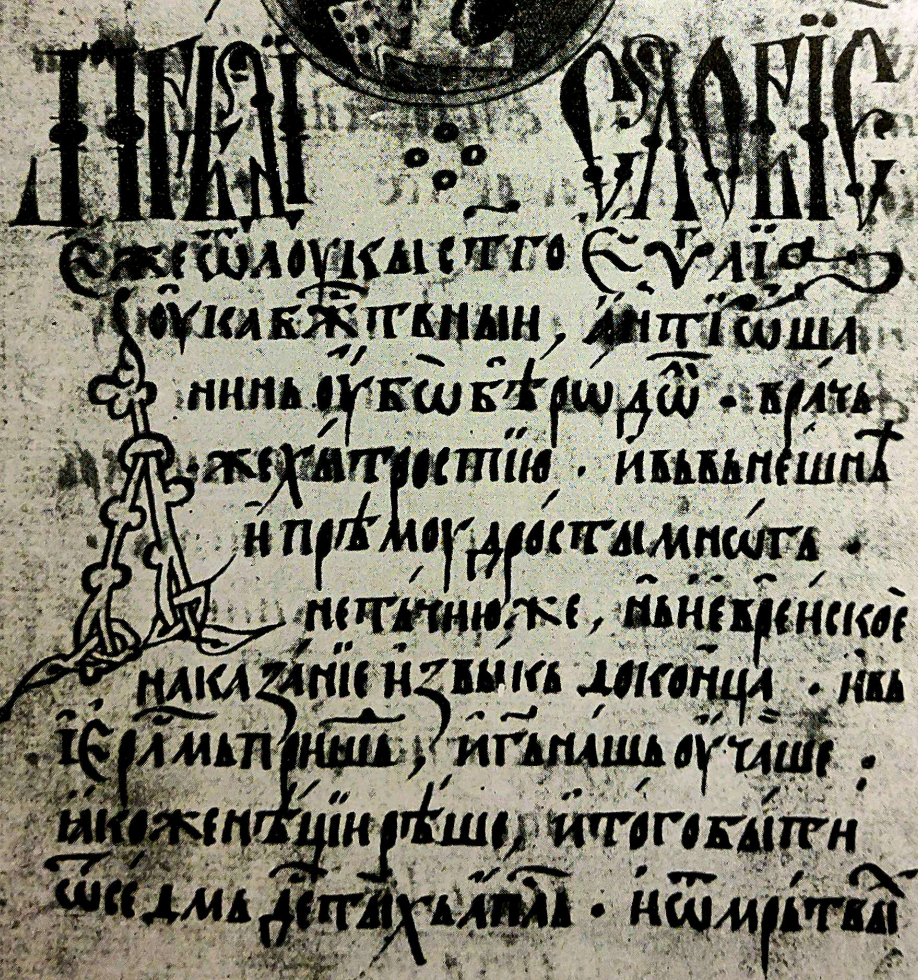 ПРЕДИ СЛОВЇЕ
Єже ѿ лоукы ст҃го Єѵⷢ҇лїа
оука бж҃твныи, ан҆тїѡшꙗ
нинь оу҆бѡ бѣ рѡдѡⷨ · врачь
же хы́тростїю · и҆ въ вънѣшнѣ
и҆ прѣмоу́дрости мнѡгъ ·
не тъ́чию же, нъ и҆ е҆вре́искоѐ
наказа́нїе и҆звы́къ до конца · и҆ въ
і҆ер҃лмъ пришь, и҆ г҃а нашь оу҆чаше :
ꙗ҆коже нѣ́цїи рѣше, и҆ того быти
ѿ седмь де́сты́хъ а҆пⷭ҇лъ · и҆ ѿ мрътвыⷯ